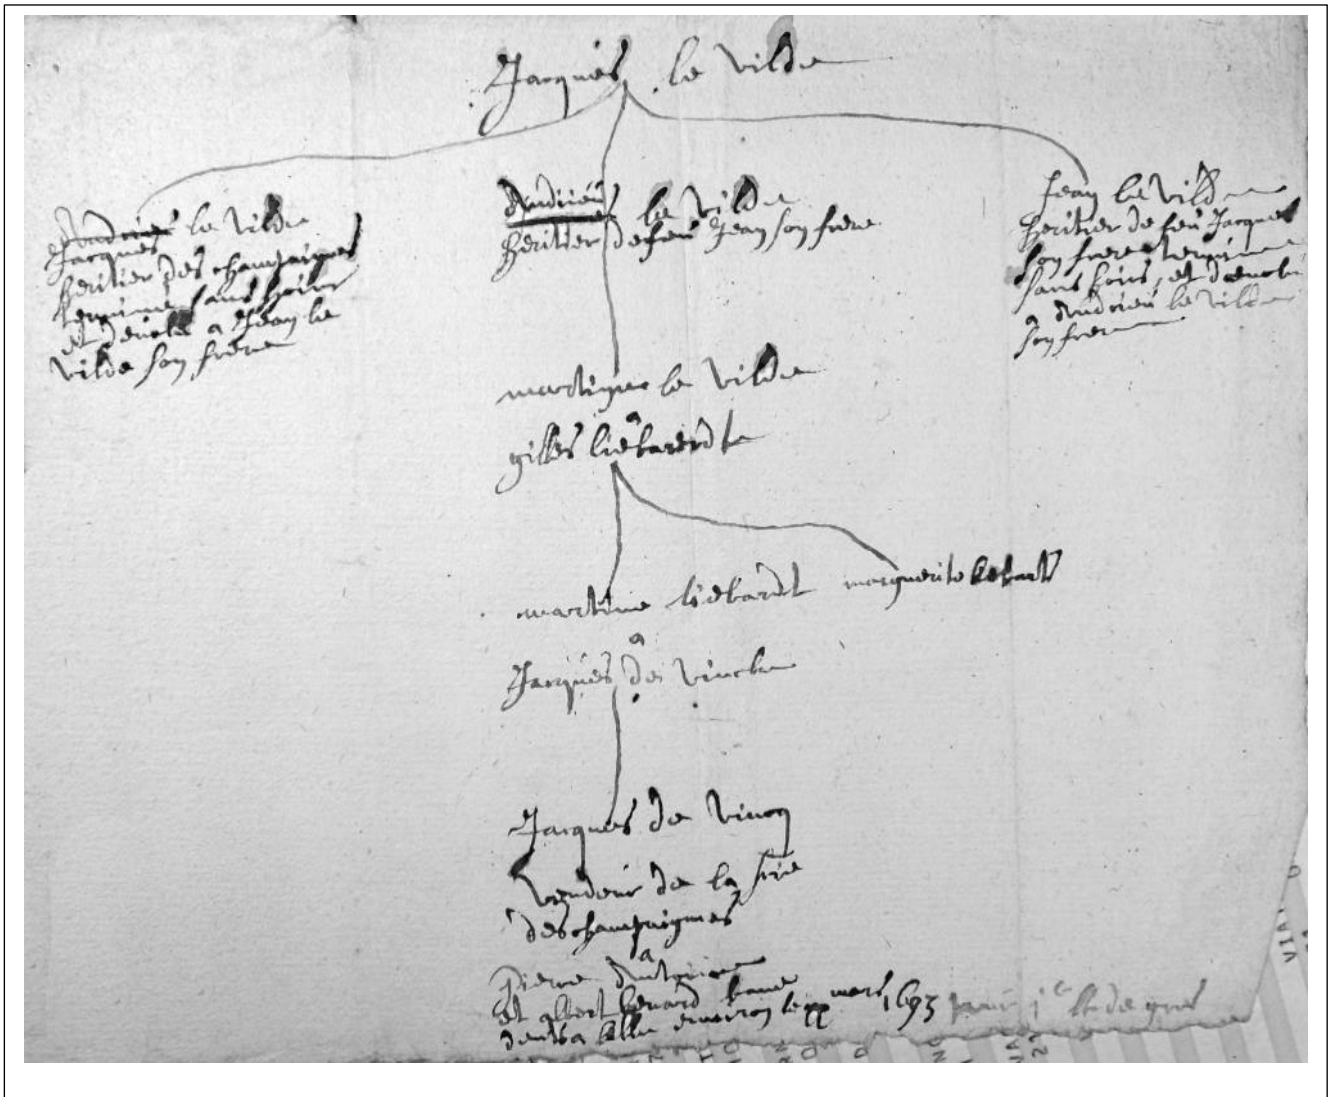 Jacques le Vilde
Jacques le Vilde
heritier des champaignes
termine sans hoirs
et devolu a Jean le
Vilde son frere
Andrieu le Vilde
heritier de feu Jean son frere
Jean le Vilde
heritier de feu Jacques
son frere termine
sans hoirs, et devolu
a Andrieu le Vilde
son frere
martine le Vilde
a
gilles liebardt
martine liebardt marguerite liebart
a
Jacques de Vincke
Jacques de Vincq
Vendeur de la srie
des champaignes
a
Pierre Antoine
et albert henard
a lille environ le mars 1693